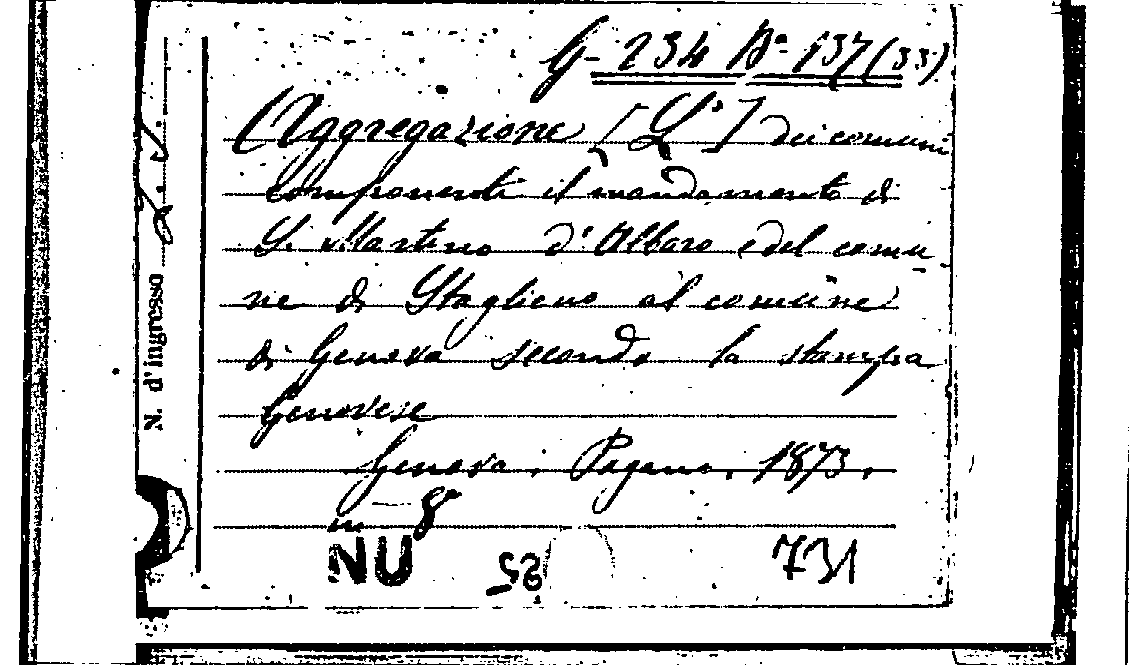 G- 234 Nº 137 (33)
(Aggregazione [L'] dei comuni
componenti il mandamento di
S. Martino d'Albaro e del comu-
ne di Staglieno al comune
di Genova secondo la stampa
Genovese
Genova, Pagano, 1873.
in 8º
NU 52 731
N. d'ingresso